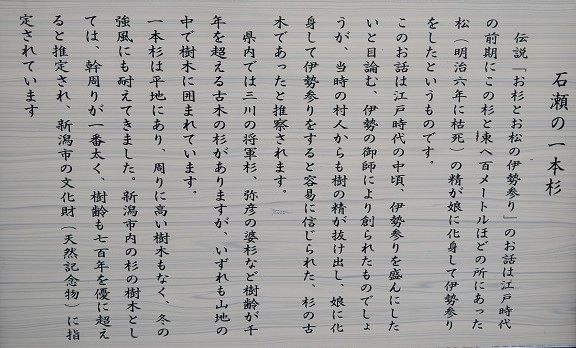 石瀬の一本杉
伝説「お杉とお松の伊勢参り」のお話は江戸時代
の前期にこの杉と東へ百メートルほどの所にあった
松（明治六年に枯死）の精が娘に化身して伊勢参り
をしたというものです。
このお話は江戸時代の中頃、伊勢参りを盛んにした
いと目論む、伊勢の御師により創られたものでしょ
うが、当時の村人からも樹の精が抜け出し、娘に化
身して伊勢参りをすると容易に信じられた、杉の古
木であったと推察されます。
県内では三川の将軍杉、弥彦の婆杉など樹齢が千
年を超える古木の杉がありますが、いずれも山地の
中で樹木に囲まれています。
一本杉は平地にあり、周りに高い樹木もなく、冬の
強風にも耐えてきました。新潟市内の杉の樹木とし
ては、幹周りが一番太く、樹齢も七百年を優に超え
ると推定され、新潟市の文化財（天然記念物）に指
定されています